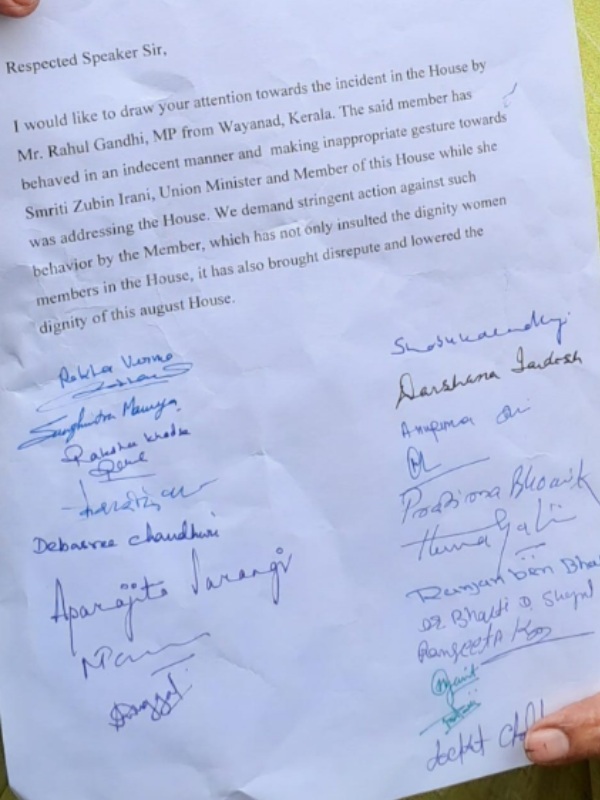 Respected Speaker Sir,
I would like to draw your attention towards the incident in the House by
Mr. Rahul Gandhi, MP from Wayanad, Kerala. The said member has
behaved in an indecent manner and making inappropriate gesture towards
Smriti Zubin Irani, Union Minister and Member of this House while she
was addressing the House. We demand stringent action against such
behavior by the Member, which has not only insulted the dignity women
members in the House, it has also brought disrepute and lowered the
dignity of this august House.
Rekha Verma
Sanghmitra Maurya
Raksha Khadse
Debasree Chaudhuri
Aparajita Sarangi
Darshana Jardosh
Anupriya
Pratima Bhoumik
Ranjanben Bha
Dr Bharti D. Shyal
Rangeeta